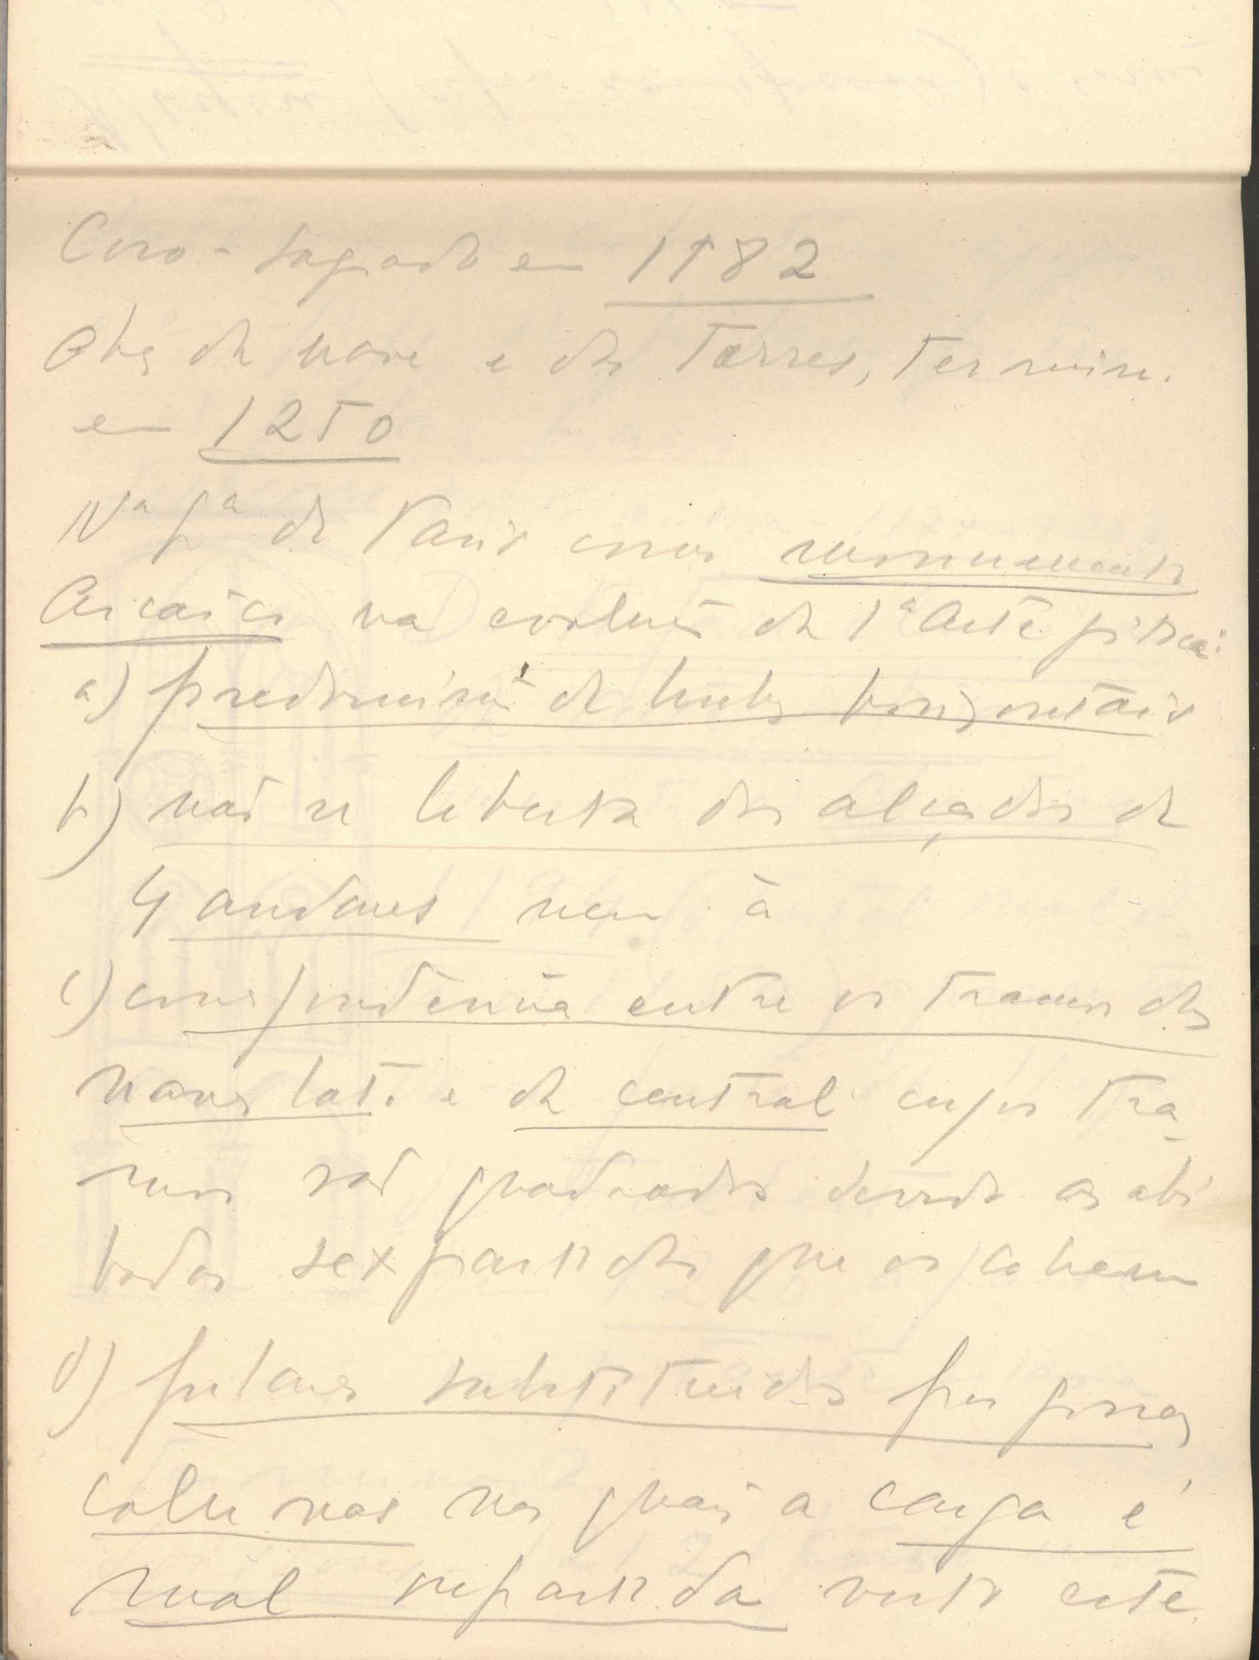 Coro - sagrado em 1182
Obra da nave e das Torres, termin.
em 1250
Nª Sª de Paris como monumento
Arcaico na evolução da 1ª Arte gótica:
a) predomínio de linhas horizontais
b) não se liberta dos alçados de
4 andares nem à
c) correspondência entre os tramos das
naves lat. e da central cujos tra_
mos são quadrados devido às abó
badas sexpartidas que os cobrem
d) pilares substituidos por grossas
colunas nas quais a carga é
mal repartida visto este